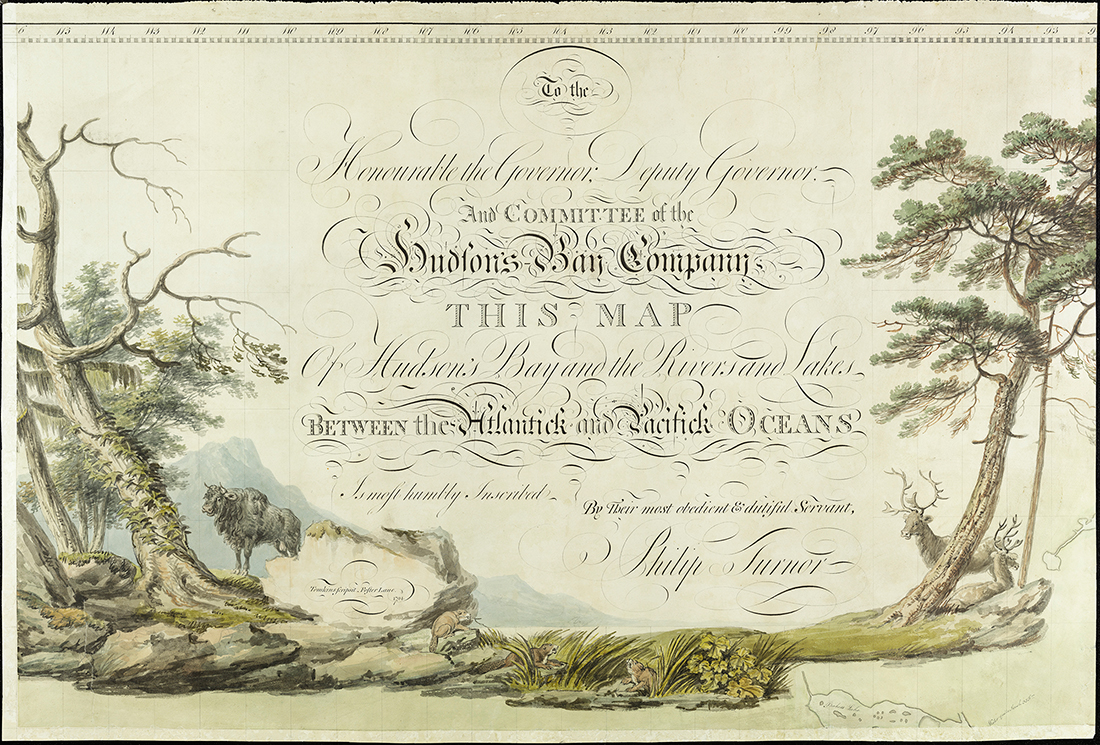 6 115 114 113 112 111 110 109 108 107 106 105 104 103 102 101 100 99 98 97 96 95 94 93 9
To the
Honourable the Governor, Deputy Governor.
And COMMITTEE of the
Hudson's Bay Company
THIS MAP
Of Hudson's Bay and the Rivers and Lakes
BETWEEN the Atlantick and Pacifick OCEANS
Is most humbly Inscribed
By Their most obedient & dutiful Servant,
Philip Turnor
Tomkins scripsit Foster Lane.